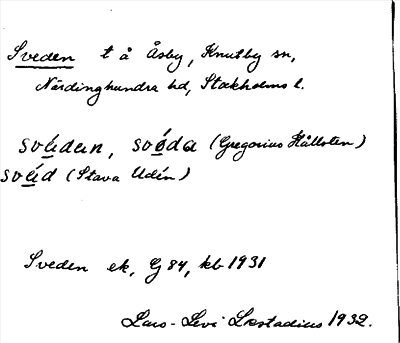 Sveden t å Åsby, Knutby sn,
Närdinghundra hd, Stockholms l.
svǽdan, svǿda (Gregorius Hållsten)
svǽd (Stava Udén)
Sveden ek, G 84, kb 1931
Lars-Levi Læstadius 1932.